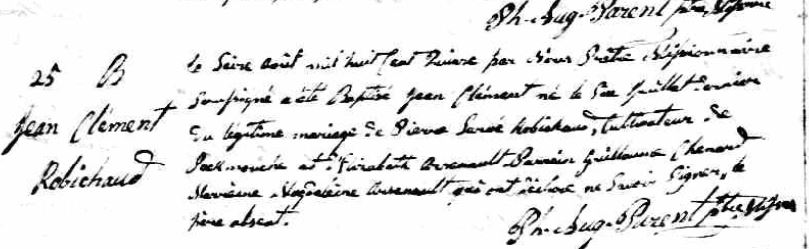 Ph. Aug. Parent ptre, Miss
25 B
Jean Clément
Robichaud
le Seize Août mil huit Cent Quinze par Nous Prêtre Missionnaire
Soussigné a été Baptisé Jean Clément né le Juillet dernier
du légitime mariage de Pierre Robichaud, Cultivateur de
Pockmouche et d'Elizabeth Arsenault Parrain Guillaume Chenard
Marraine Magdeleine Arsenault qui ont déclaré ne Savoir Signer, le
père absent.
Ph. Aug. Parent ptre Miss